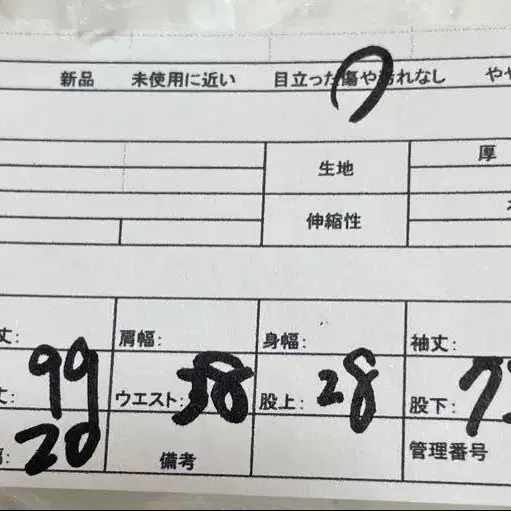 新品 未使用に近い 目立った傷や汚れなし やや
生地 厚
伸縮性
丈: 肩幅: 身幅: 袖丈:
丈: 99 ウエスト: 38 股上: 28 股下: 7
幅: 20 備考 管理番号